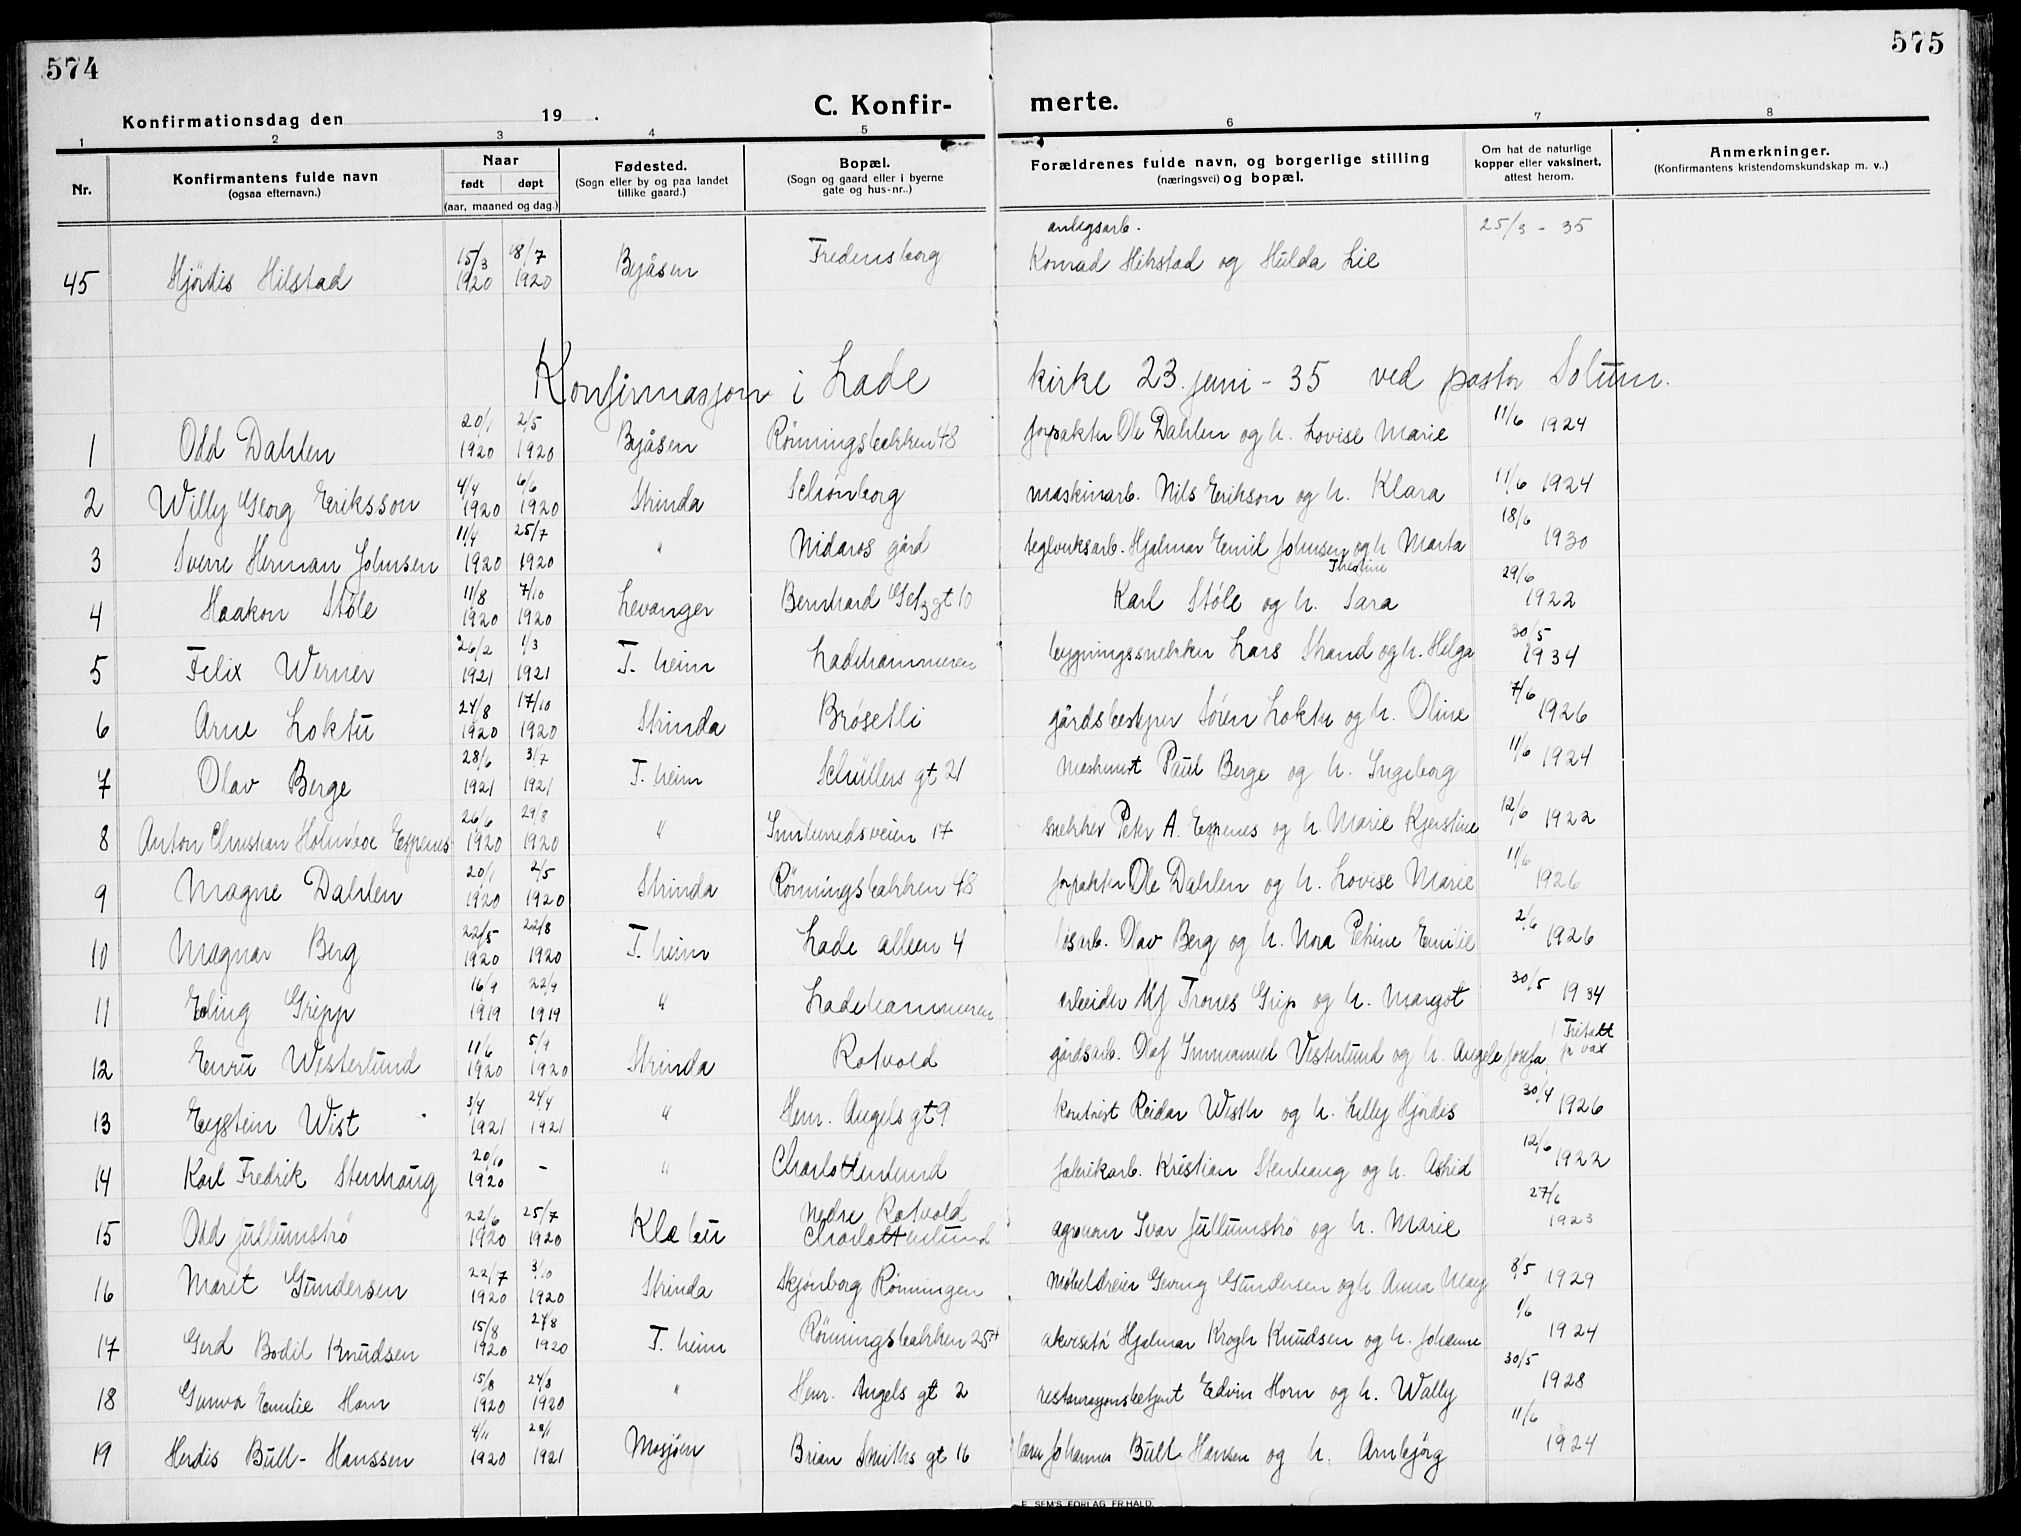 574
575
C. Konfir- merte.
Konfirmationsdag den 19 .
1 2 3 4 5 6 7 8
Nr.
Konfirmantens fulde navn
(ogsaa efternavn.)
Naar
født døpt
(aar, maaned og dag.)
Fødested.
(Sogn eller by og paa landet
tillike gaard.)
Bopæl.
(Sogn og gaard eller i byerne
gate og hus-nr..)
Forældrenes fulde navn, og borgerlige stilling
(næringsvei) og bopæl.
Om hat de naturlige
kopper eller vaksinert,
attest herom.
Anmerkninger.
(Konfirmantens kristendomskundskap m. v..)
45 Hjördis Hilstad 15/3 1920 18/7 1920 Byåsen Fredensborg anlegsarb. Konrad Hilstad og Hulda Lie 25/3 - 35
Konfirmasjon i Lade kirke 23. juni - 35 ved pastor Solum.
1 Odd Dahlen 20/1 1920 2/5 1920 Byåsen Rönningsbakken 48 forpakter Ole Dahlen og h. Lovise Marie 11/6 1924
2 Willy Georg Eriksson 4/4 1920 6/6 1920 Strinda Schönborg maskinarb. Nils Erikson og h. Klara 11/6 1924
3 Sverre Herman Johnsen 11/4 1920 25/7 1920 " Nidaros gård teglverksarb. Hjalmar Emil Johnsen og h Marta 18/6 1930
4 Haakon Støle 11/8 1920 7/10 1920 Levanger Bernhard Getz gt 10 Karl Støle og h. Sara 29/6 1922
5 Felix Werner 26/2 1921 1/3 1921 T. heim Ladehammeren bygningssnekker Lars Strand og h. Helga 30/5 1934
6 Arne Loktu 24/8 1920 17/10 1920 Strinda Brøsetli gårdsbestyrer Sören Loktu og h. Oline 7/6 1926
7 Olav Berge 28/6 1921 31/7 1921 T. heim Schüllers gt 21 maskinist Paul Berge og h. Ingeborg 11/6 1924
8 Anton Christian Espenes 26/6 1920 29/8 1920 " 17 snekker Peter A. Espenes og h. Marie Kjerstine 12/6 1922
9 Magne Dahlen 20/1 1920 2/5 1920 Strinda Rönningsbakken 48 forpakter Ole Dahlen og h. Lovise Marie 11/6 1926
10 Magnar Berg 22/5 1920 22/8 1920 T. heim Lade alleen 4 løsarb. Olav Berg og h. Nora Petrine Emilie 2/6 1926
11 Erling Gripp 16/9 1919 22/9 1919 " Ladehammeren arbeider Alf Trones Grip og h. Margot 30/5 1934
12 Westerlund 11/6 1920 5/9 1920 Strinda Rotvold gårdsarb. Olof Immanuel Vesterlund og h. Angele Josefa Fritatt for vax
13 Eystein Wist 3/4 1921 24/4 1921 " Henr. Angels gt 9 kontorist Reidar Westh og h. Lilly Hjördis 30/4 1926
14 Karl Fredrik Stenhaug 20/10 1920 - " Charlottenlund fabrikarb. Kristian Stenhaug og h. Astrid 12/6 1922
15 Odd Jullumströ 22/6 1920 25/7 1920 Klæbu Nedre Rotvold Charlottenlund agronom Ivar Jullumströ og h. Marie 27/6 1923
16 Marit Gundersen 22/7 1920 3/10 1920 Strinda Skjönborg Rönningen møbeldreier Georg Gundersen og h Anna May 8/5 1929
17 Gerd Bodil Knudsen 15/8 1920 24/8 1920 T. heim Rönningsbakken 25 akvisitör Hjalmar Krogh Knudsen og h. Johanne 1/6 1924
18 Gunvor Emilie Horn 15/8 1920 24/8 1920 " Henr. Angels gt 2 restaurasjonsbetjent Edvin Horn og h. Wally 30/5 1928
19 Herdis Bull-Hanssen 4/11 1920 28/1 1921 Mosjøen Brian Smiths gt 16 lærer Johannes Bull Hansen og h. Arnbjörg 11/6 1924
E. SEM'S FORLAG FR.HALD.